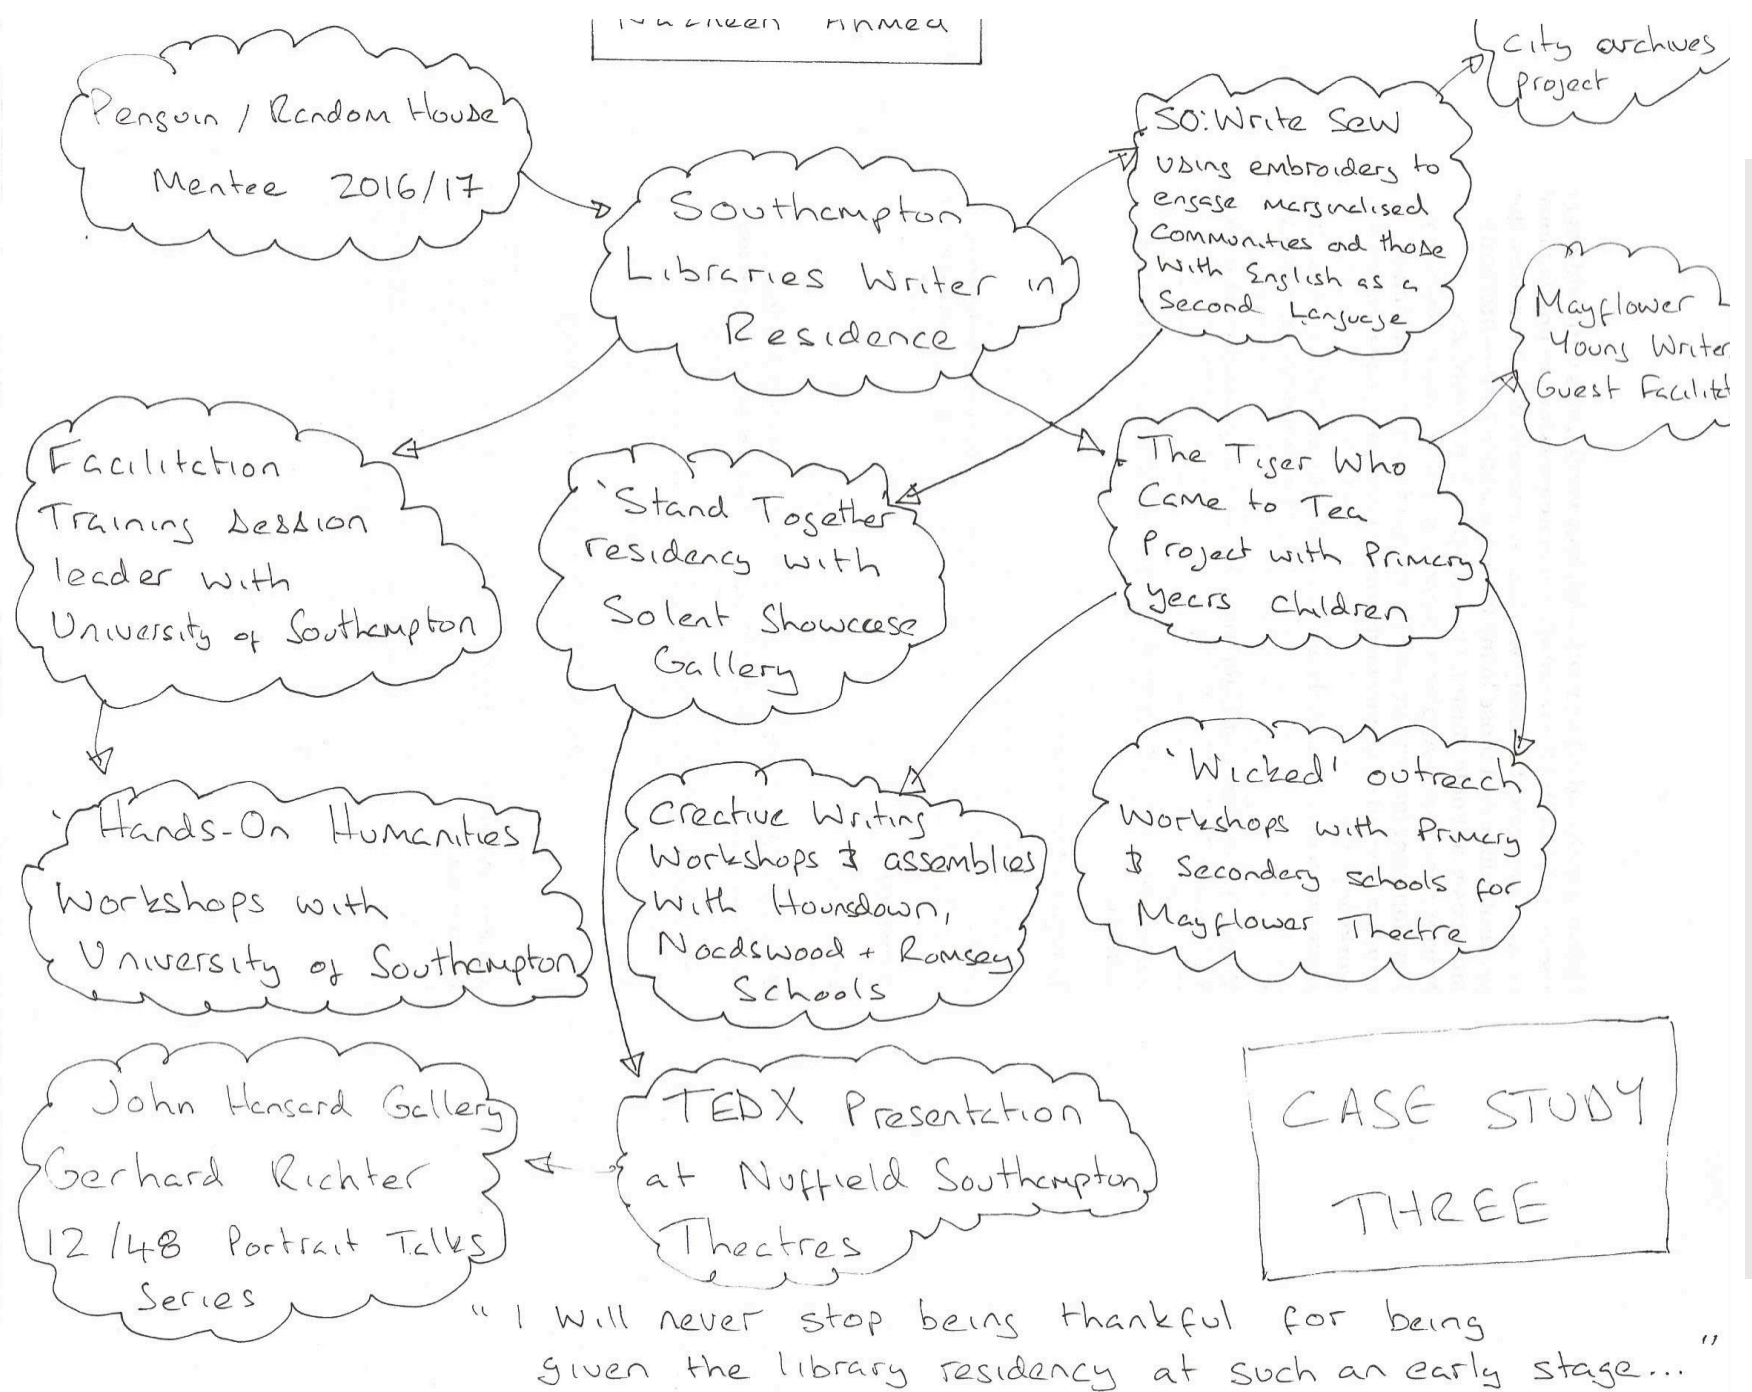 Nazneen Ahmed
Penguin / Random House
Mentee 2016/17
Southampton
Libraries Writer in
Residence
SO:Write Sew
Using embroidery to
engage marginalised
Communities and those
With English as a
Second Language
City archives
Project
Mayflower
Young Writer
Guest Facilit
Facilitation
Training Session
leader with
University of Southampton
'Stand Together'
residency with
Solent Showcase
Gallery
The Tiger Who
Came to Tea
Project with Primary
years children
'Hands-On Humanities
Workshops with
University of Southampton
Creative Writing
Workshops & assemblies
With Hounsdown,
Noadswood + Romsey
Schools
'Wicked' outreach
Workshops with Primary
& Secondary schools for
Mayflower Theatre
John Hansard Gallery
Gerhard Richter
12/48 Portrait Talks
Series
TEDX Presentation
at Nuffield Southampton
Theatres
CASE STUDY
THREE
"I will never stop being thankful for being
given the library residency at such an early stage..."